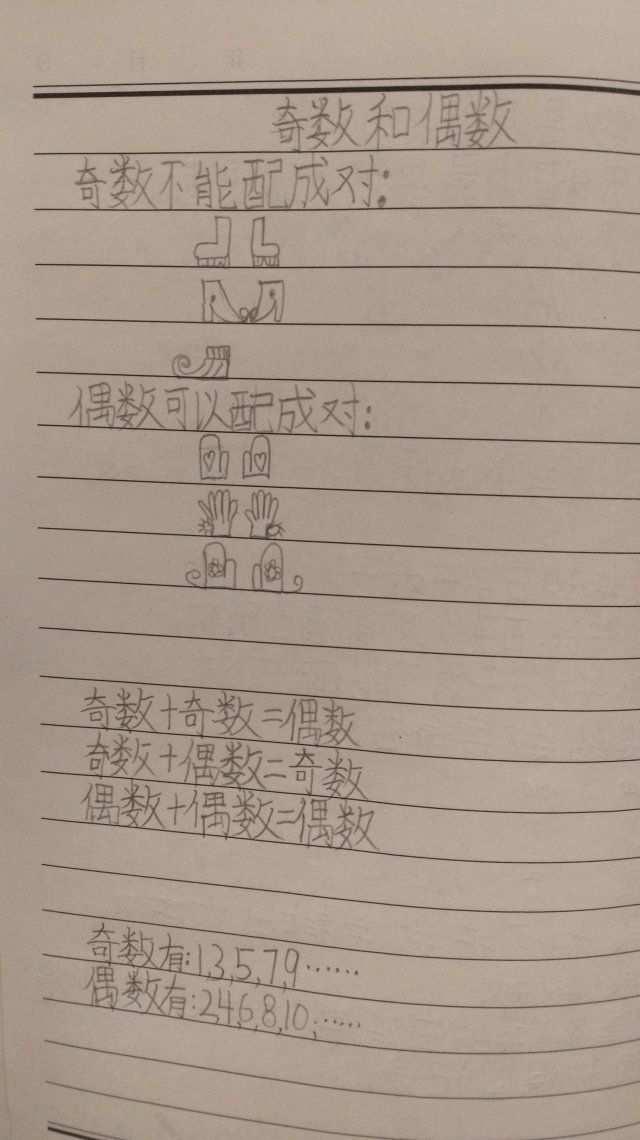 奇数和偶数
奇数不能配成对:
偶数可以配成对:
奇数+奇数=偶数
奇数+偶数=奇数
偶数+偶数=偶数
奇数有:1,3,5,7,9……
偶数有:2,4,6,8,10,……